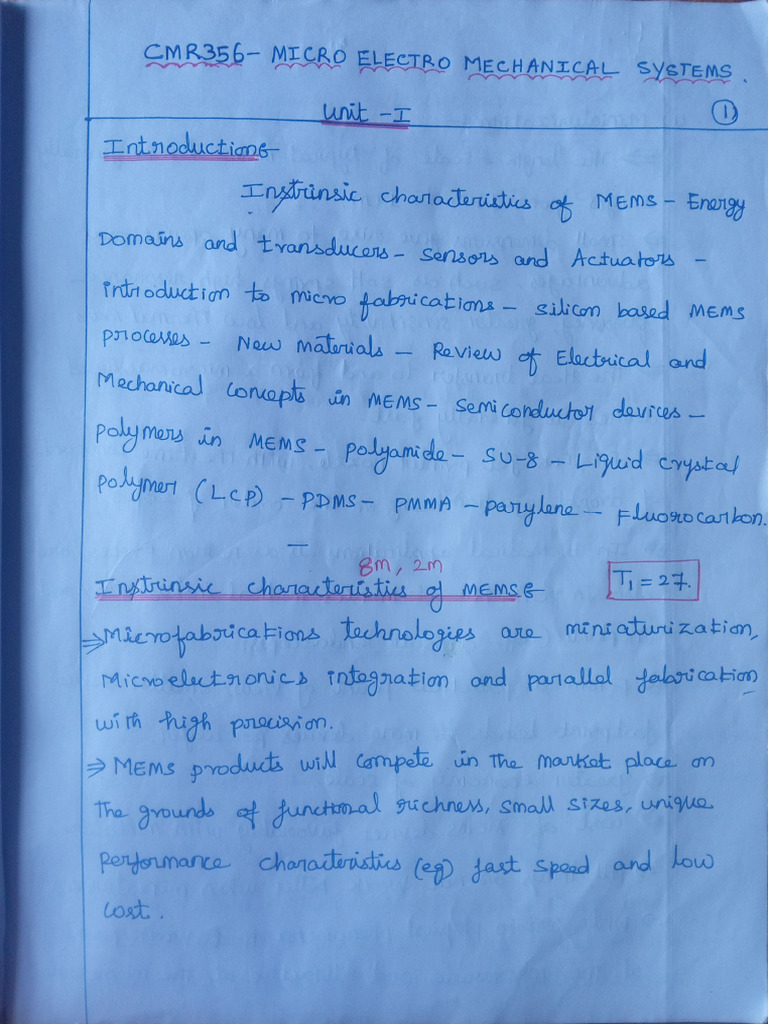 CMR356- MICRO ELECTRO MECHANICAL SYSTEMS.
Unit -I
1
Introduction:-
Instrinsic characteristics of MEMS - Energy
Domains and transducers - sensors and Actuators -
introduction to micro fabrications - silicon based MEMS
processes - New materials - Review of Electrical and
Mechanical concepts in MEMS - semiconductor devices -
polymers in MEMS - polyamide - SU-8 - Liquid crystal
polymer (LCP) - PDMS - PMMA - parylene - Fluorocarbon.
8m, 2m
Instrinsic characteristics of MEMS:-
T1 = 27.
⇒ Microfabrications technologies are miniaturization,
Microelectronics integration and parallel fabrication
with high precision.
⇒ MEMS products will compete in the market place on
the grounds of functional richness, small sizes, unique
performance characteristics (eg) fast speed and low
cost.